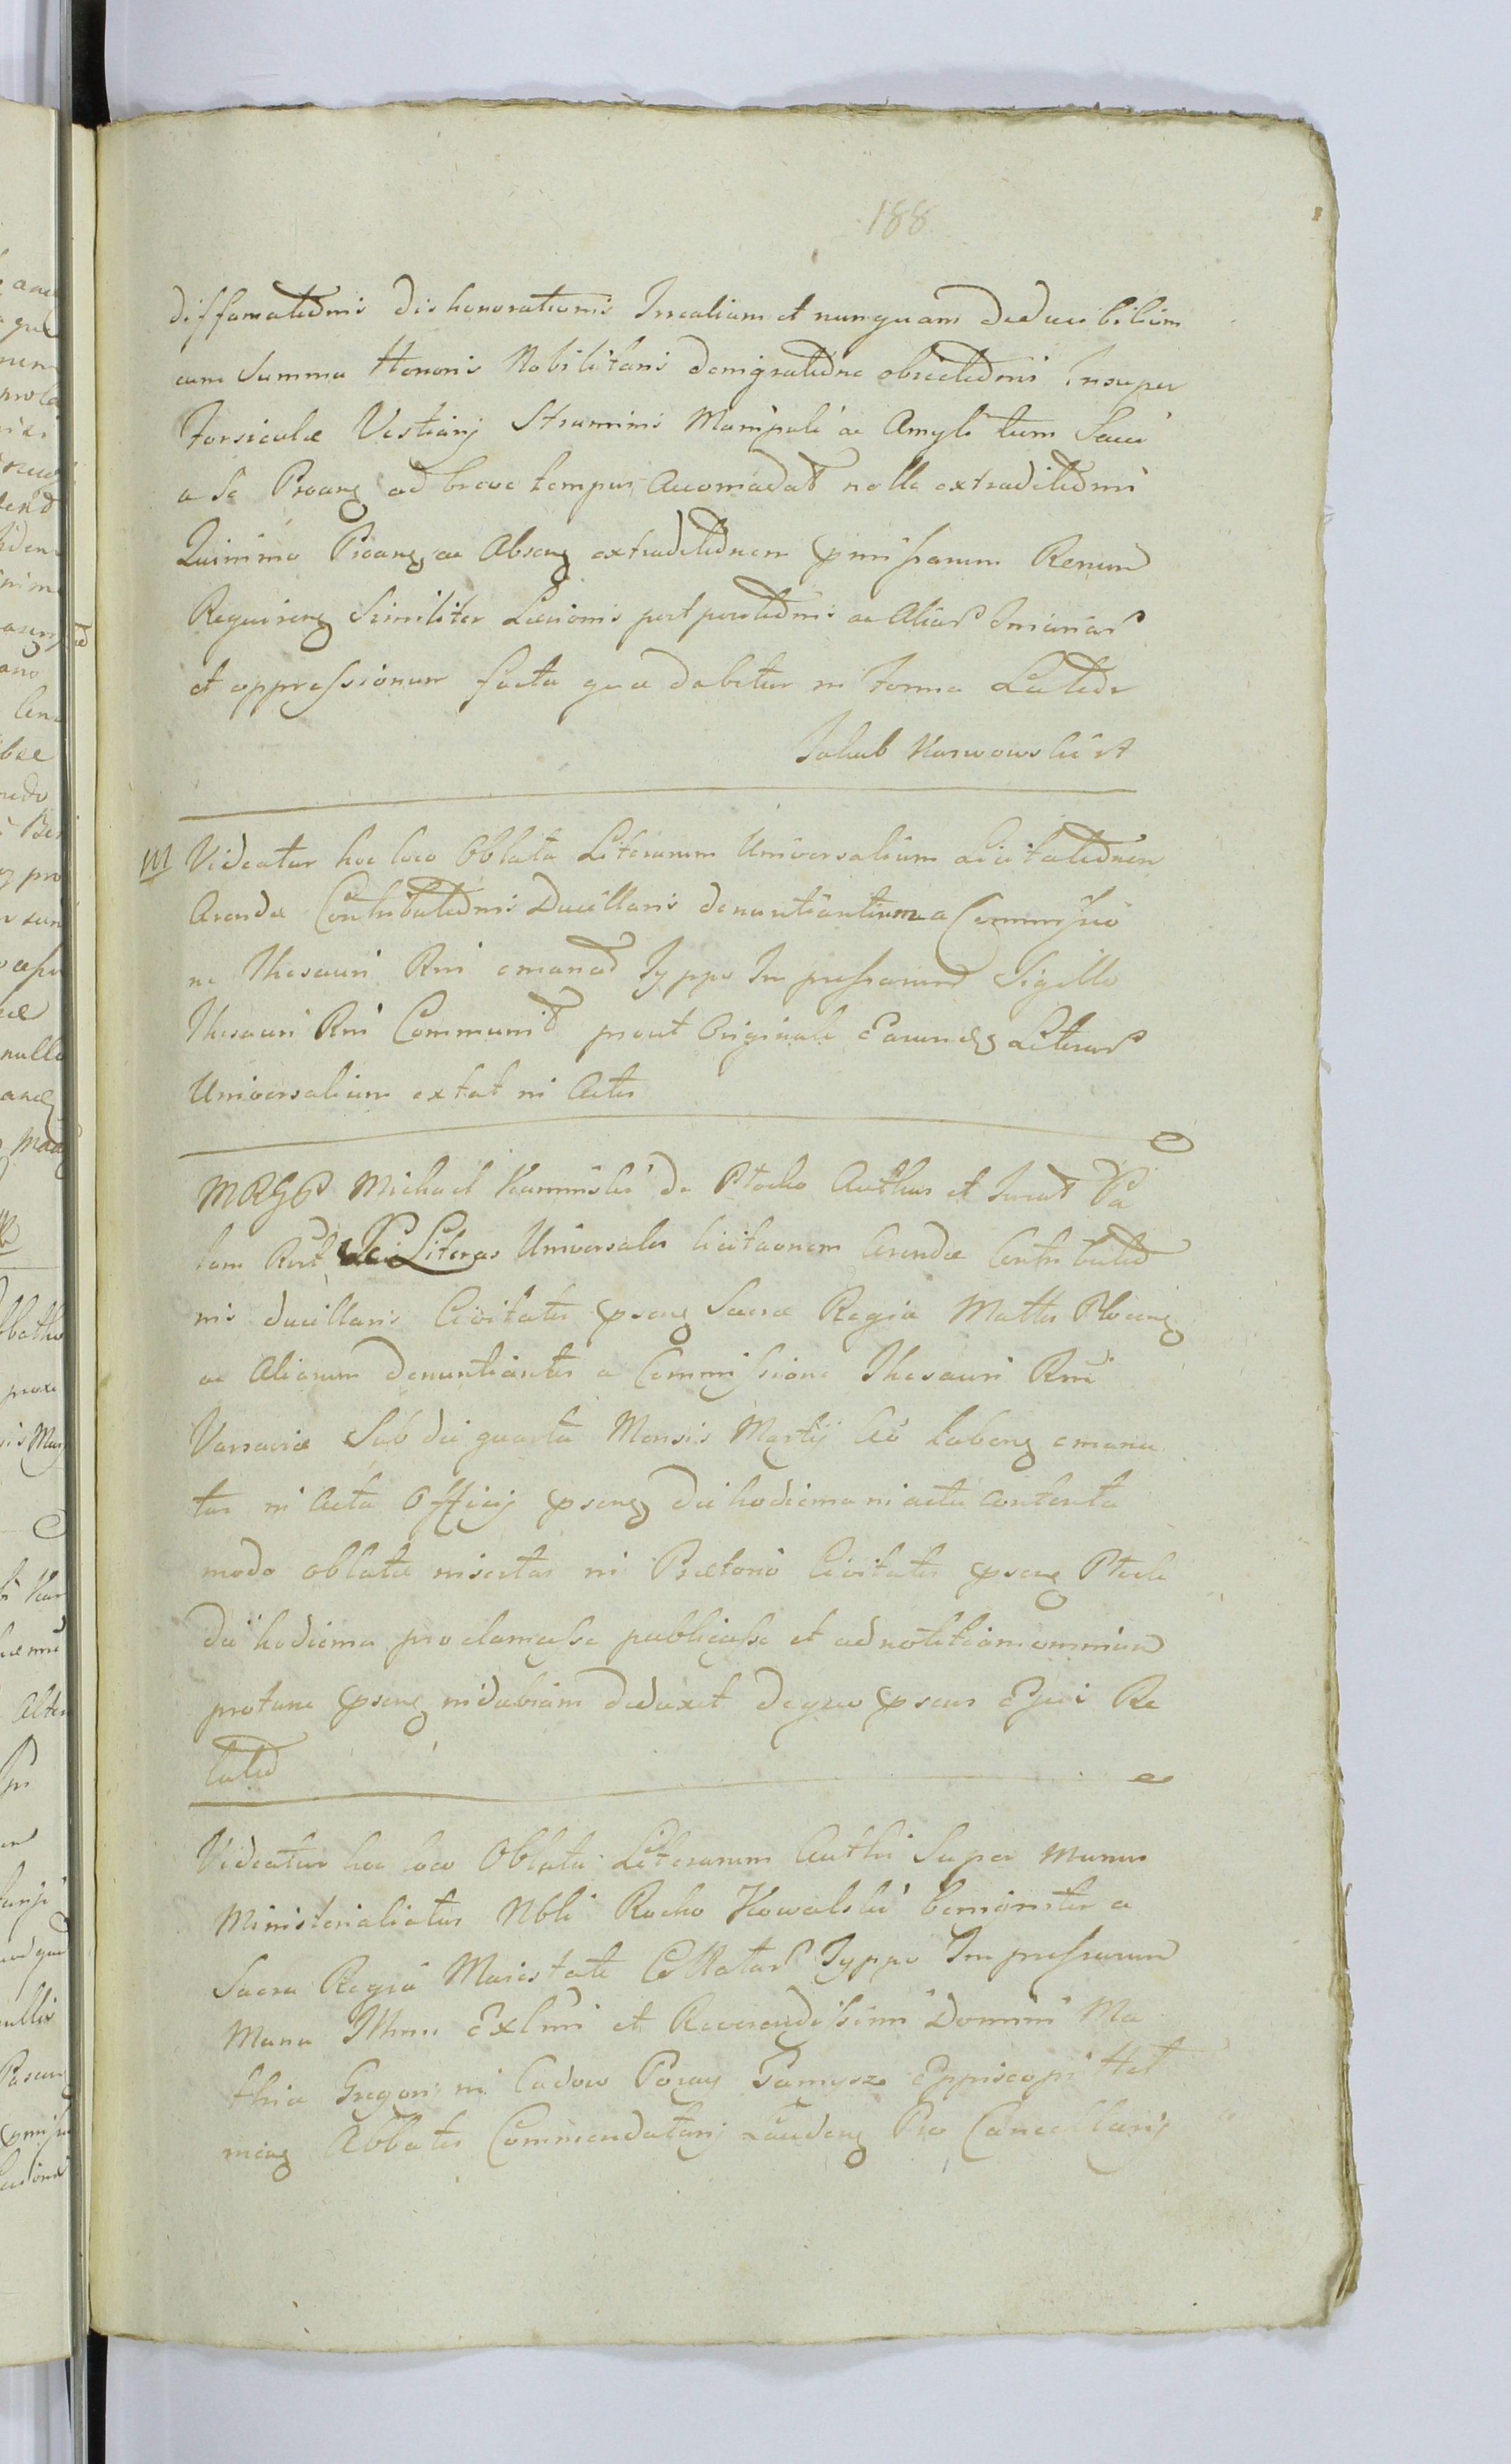 188
diffamationis dishonorationis Irrealium et nunquam deducibilium
cum Summa Honoris Nobilitaris denigratione obiectionis Insuper
Forsiculae Vestiarij Straminis Manipuli ac Amyli tum Sacci
a Se Proang ad breve tempus Accomadat nolle extraditionis
Quinimo Proang ac Abseng extraditionem pmissarum Rerum
Requireng Similiter Laesionis postpositionis ac Aliar Iniuriar
et oppressionum facta quae dabitur in Forma Latiori
Jakub Karwowski
M Videatur hoc loco Oblata Literarum Universalium Licitationem
Arendae Contributionis Ducillaris denuntiantium a Commissio
ne Thesauri Rni emanat Typpo Impressarum Sigillo
Thesauri Rni Communit prout Originale Earundg Literar
Universalium extat in Actis
MRGP Michael Kaminski de Plocko Authus et Iurat Pa
lam Literas Universales licitaonem Arendae Contributio
nis ducillaris Civitatis pseng Sacrae Regiae Mattis Ploceng
ac Aliarum denuntiantes a Commissione Thesauri Rni
Varsaviae Sub die quarta Mensis Martij Ao Labeng emana
tas in Acta Officij pseng die hodierna in actu contenta
modo oblatae insertas in Praetorio Civitatis pseng Ploci
die hodierna proclamasse publicasse et ad notitiam omnium
protunc pseng indubiam deduxit de quo psens Ejus Re
latio
Videatur hoc loco Oblata Literarum Authi Super munus
Ministerialiatus Nbli Rocho Kowalski benigniter a
Sacra Regia Maiestate Collatar Typpo Impressarum
Manu Illmi Exlmi et Reverendissimi Domini Ma
thia Gregorij in Cadow Poray Garnysz Eppiscopi Hel
meng Abbatis Commendatarij Laudeng Pro Cancellarij